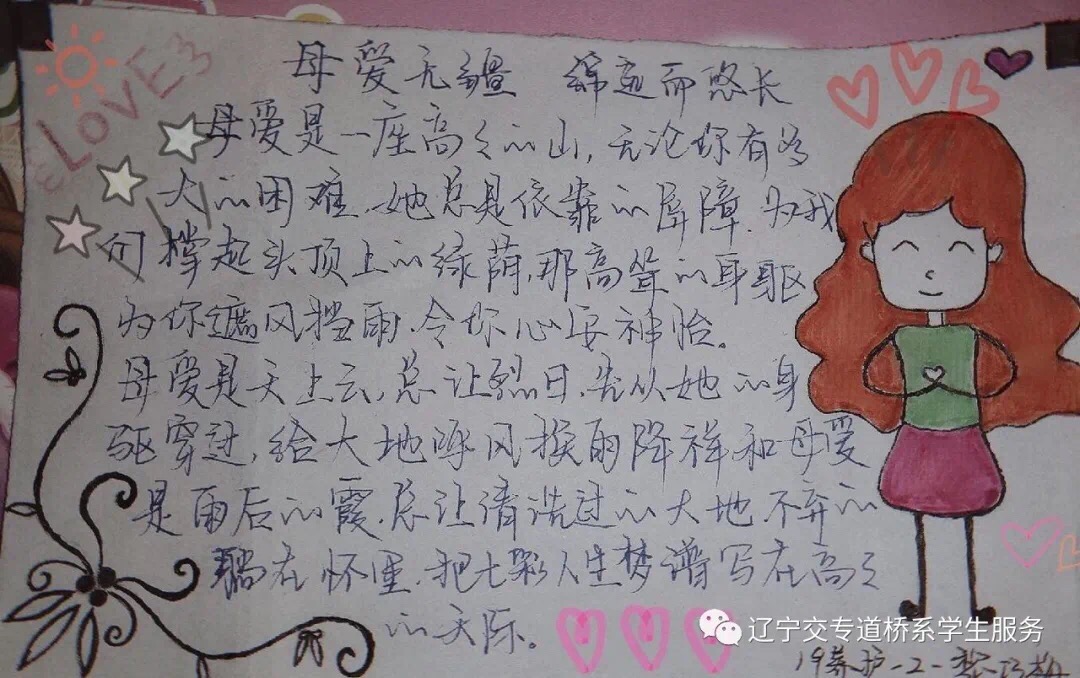 LOVE
母爱无疆 绵远而悠长
母爱是一座高々的山,无论你有多
大的困难,她总是依靠的屏障.为我
们撑起头顶上的绿荫,那高耸的身躯
为你遮风挡雨,令你心安神怡。
母爱是天上云,总让烈日,先从她的身
驱穿过,给大地呼风换雨降祥和母爱
是雨后的霞.总让清洗过的大地不弃的
躺在怀里.把七彩人生梦谱写在高々
的天际。
辽宁交专道桥系学生服务
19养护-2-